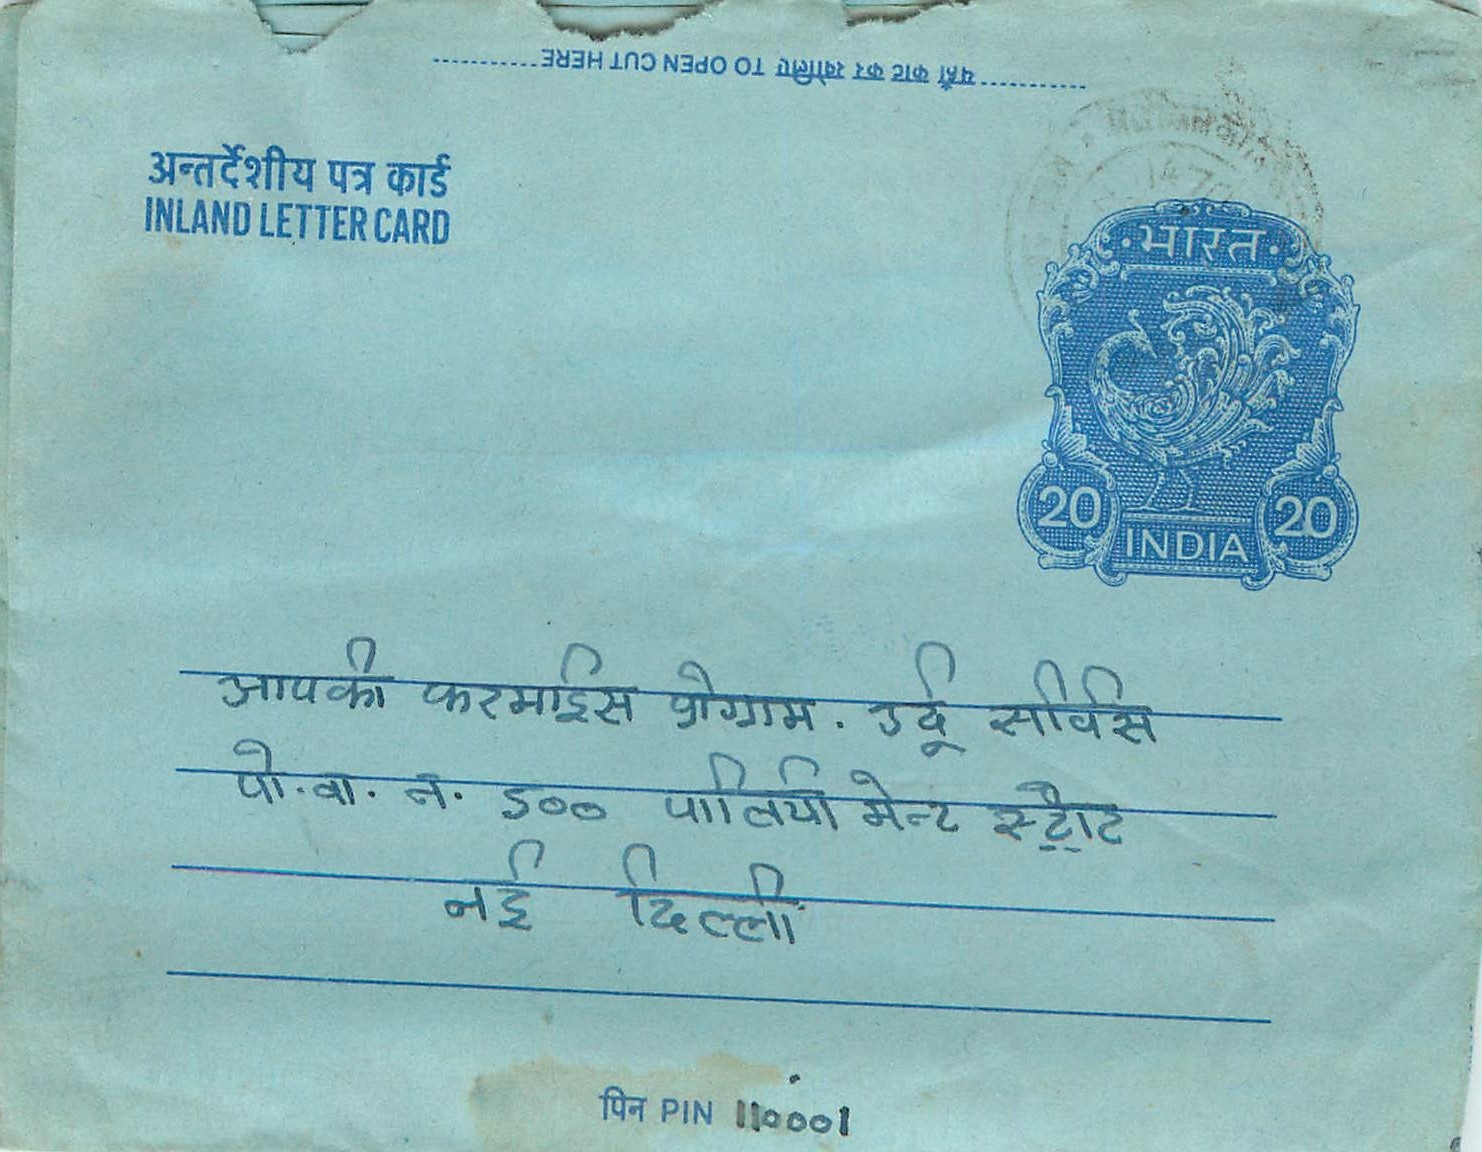 यहाँ काट कर खोलिए TO OPEN CUT HERE
अन्तर्देशीय पत्र कार्ड
INLAND LETTER CARD
भारत
20 20
INDIA
आपकी फरमाईस प्रोग्राम. उर्दू सर्विस
पो.बा. न. ५०० पार्लियामेन्ट स्ट्रीट
नई दिल्ली
पिन PIN 110001